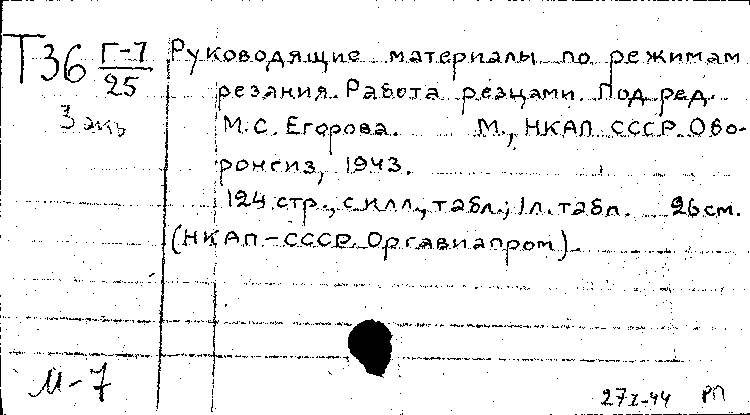 Т36 Г-7/25
3 экз
Руководящие материалы по режимам
резания. Работа резцами. Под ред.
М.С. Егорова. М., НКАП СССР. Обо-
ронгиз, 1943.
124 стр., с илл., табл.; 1 л. табл. 26 см.
(НКАП-СССР. Оргавиапром).
М-7
27 X-44 РП